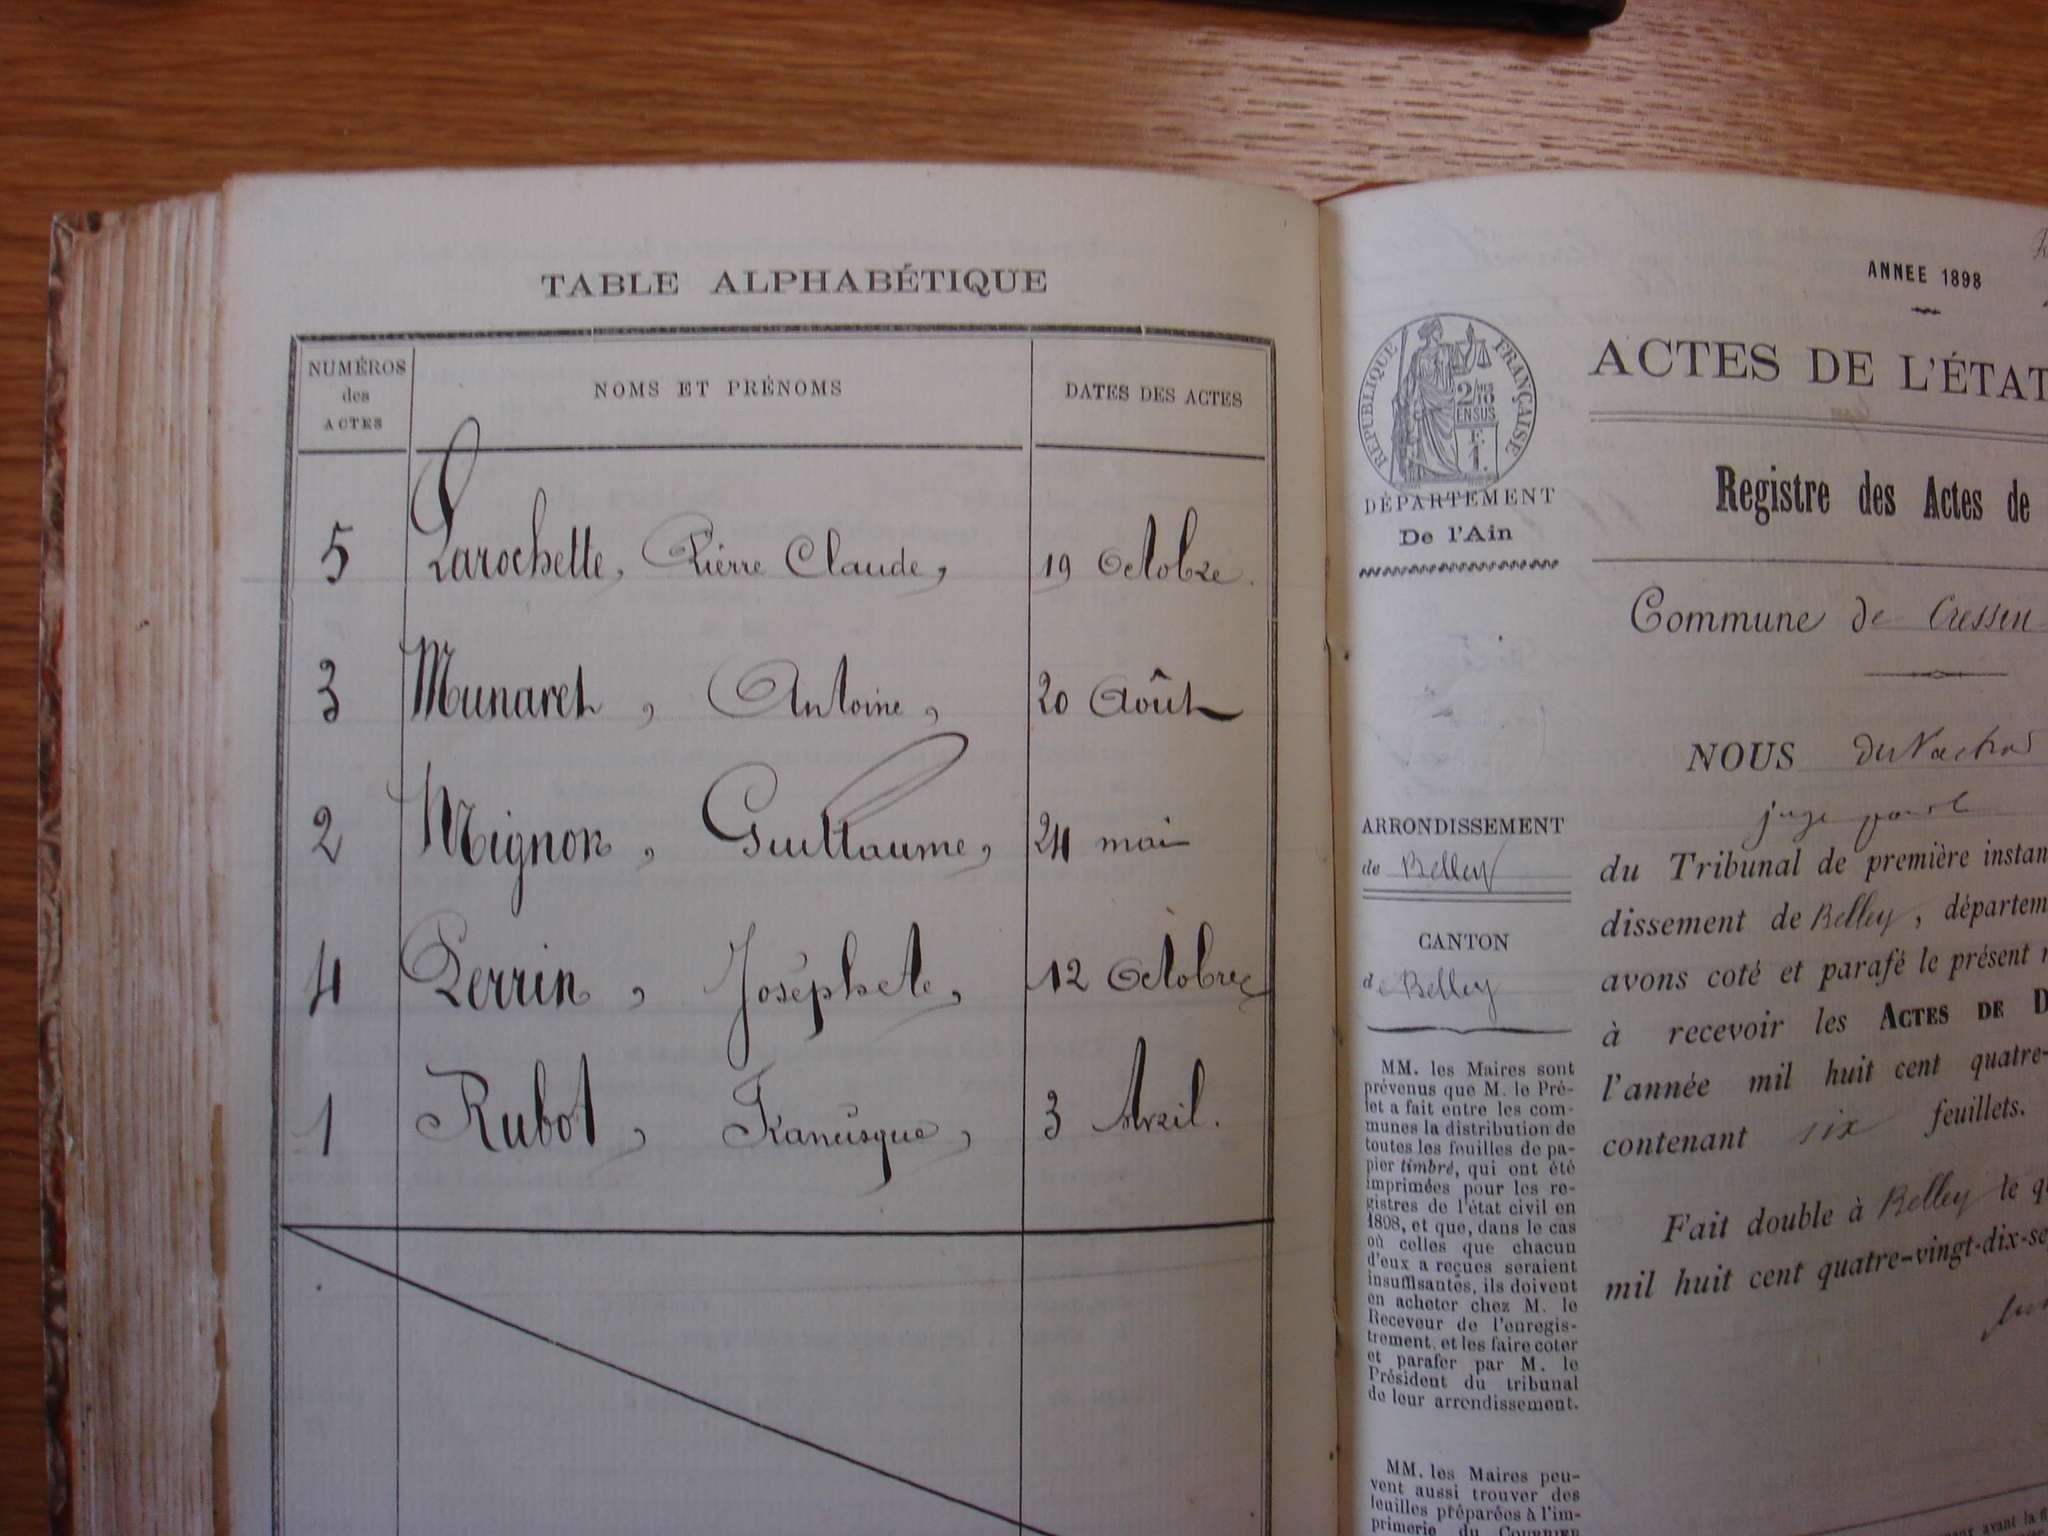 TABLE ALPHABÉTIQUE
NUMÉROS
des
ACTES
NOMS ET PRÉNOMS
DATES DES ACTES
5 Larochette, Pierre Claude, 19 Octobre.
3 Munaret, Antoine, 20 Août
2 Mignon, Guillaume, 24 mai
4 Perrin, Josephete, 12 Octobre
1 Rubot, Francisque, 3 Avril.
ANNEE 1898
ACTES DE L'ÉTAT
RÉPUBLIQUE FRANÇAISE
2/10 EN SUS
F.
1.
DÉPARTEMENT
De l'Ain
Registre des Actes de
Commune de Cressin
NOUS
juge
ARRONDISSEMENT
de Belley
CANTON
de Belley
du Tribunal de première instan
dissement de Belley, départem
avons coté et parafé le présent
à recevoir les ACTES DE D
l'année mil huit cent quatre-
contenant six feuillets.
Fait double à Belley le q
mil huit cent quatre-vingt-dix-se
MM. les Maires sont
prévenus que M. le Pré-
fet a fait entre les com-
munes la distribution de
toutes les feuilles de pa-
pier timbré, qui ont été
imprimées pour les re-
gistres de l'état civil en
1898, et que, dans le cas
où celles que chacun
d'eux a reçues seraient
insuffisantes, ils doivent
en acheter chez M. le
Receveur de l'enregis-
trement, et les faire coter
et parafer par M. le
Président du tribunal
de leur arrondissement.
MM. les Maires peu-
vent aussi trouver des
feuilles préparées à l'im-
primerie du COURRIER